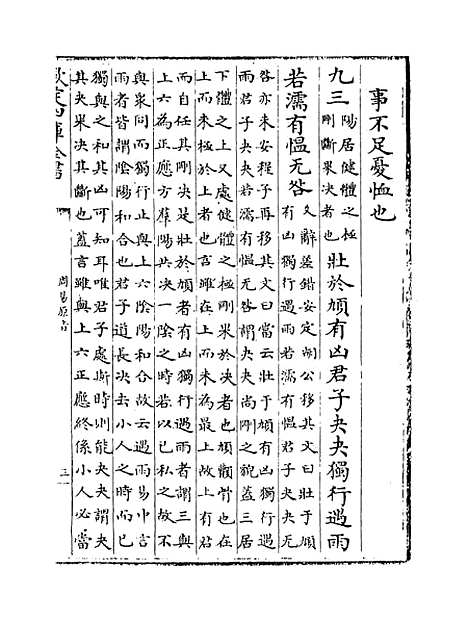 事不足憂恤也
九三 陽居健體之極
剛斷果決者也 壯於頄有凶君子夬夬獨行遇雨
若濡有愠无咎 文辭差錯安定胡公移其文曰壯于頄
有凶獨行遇雨若濡有愠君子夬夬无
咎亦未安程子再移其文曰當云壯于頄有凶獨行遇
雨君子夬夬若濡有愠无咎謂夬夬尚剛之貌蓋三居
下體之上又處健體之極剛果於決者也頄顴骨也在
上而未極於上者也言雖在上而未為最上故上有君
而自任其剛決是壯於頄者有凶獨行遇雨者謂三與
上六為正應方羣陽共決一陰之時若以已私之故不
與衆同而獨行正與上六陰陽和合故云遇雨易中言
雨者皆謂陰陽和合也君子道長決去小人之時而已
獨與之和其凶可知耳唯君子處斯時則能夬夬謂夬
其夬果決其斷也蓋言雖與上六正應終係小人必當
欽定四庫全書
周易原旨